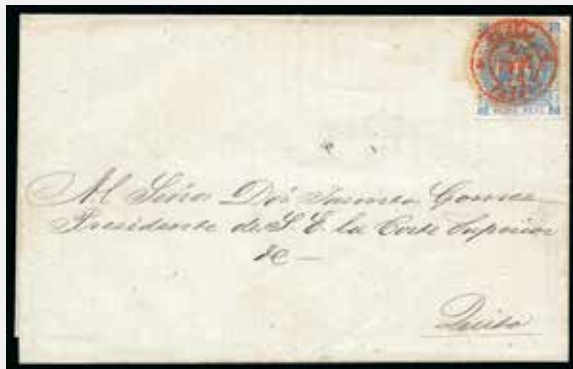 Al Señor Dor Jacinto Gomez
Presidente de S. E. la Corte Superior
&c —
Quito